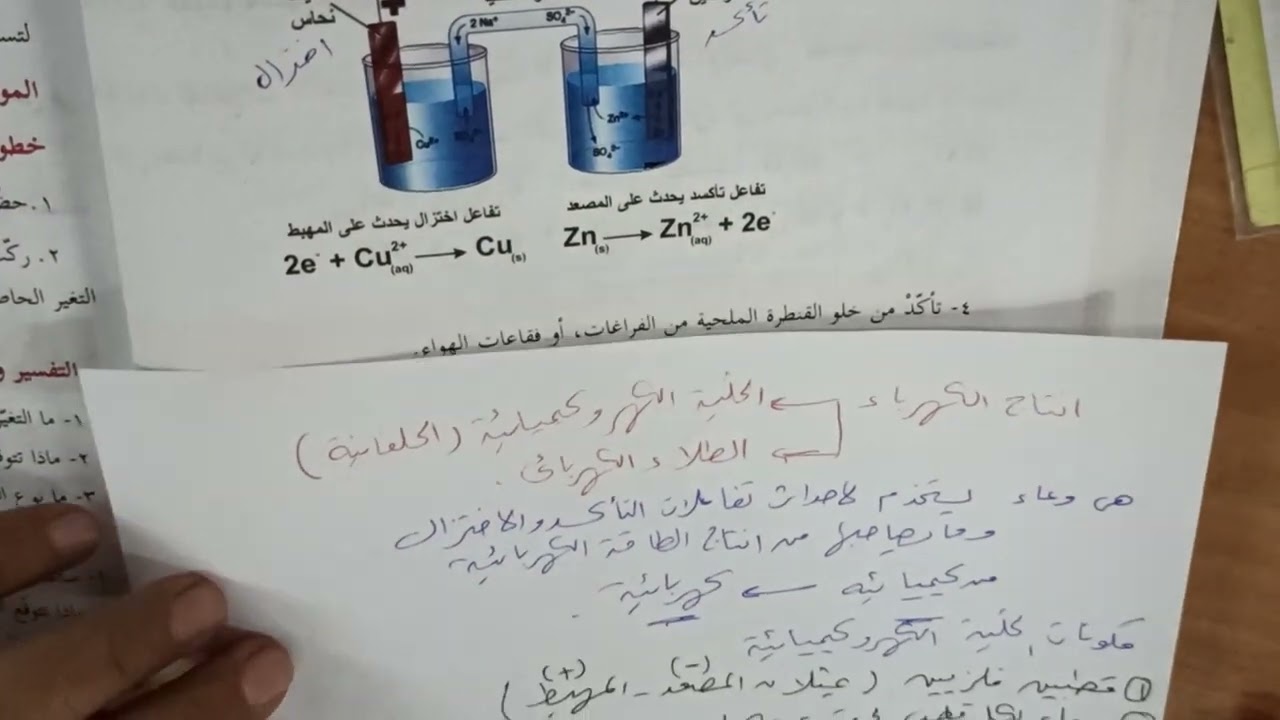 نحاس
اختزال
تأكسد
2 Na⁺
SO₄²⁻
Cu²⁺
SO₄²⁻
Zn²⁺
SO₄²⁻
تفاعل اختزال يحدث على المهبط
2e⁻ + Cu²⁺(aq) → Cu(s)
تفاعل تأكسد يحدث على المصعد
Zn(s) → Zn²⁺(aq) + 2e⁻
٤- تأكّدْ من خلو القنطرة الملحية من الفراغات، أو فقاعات الهواء.
خطو
٢. ركّ
التغير الحاص
التفسير و
١- ما التغيّ
٢- ماذا تتوق
٣- ما نوع ال
انتاج الكهرباء ← الخلية الكهروكيميائية (الجلفانية)
← الطلاء الكهربائي.
هي وعاء يستخدم لاحداث تفاعلات التأكسد والاختزال
وما يصاحبها من انتاج الطاقة الكهربائية
من كيميائيه ← كهربائية.
مكونات الخلية الكهروكيميائية
① قطبين فلزيين (يمثلان المصعد (-) - المهبط (+))